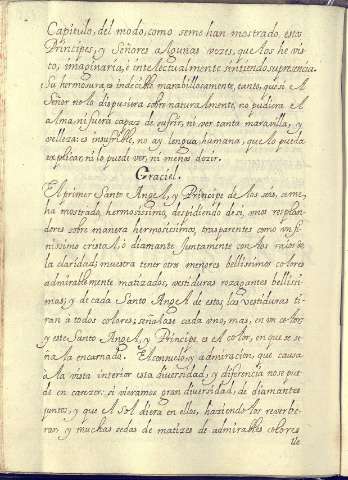 Capitulo, del modo, como seme han mostrado, estos
Principes, y Señores Algunas vezes, que los he vis
to, imaginaria, è intelectualmente sintiendo su presencia.
Su hermosura es indecible marabillosamente, tanto, que si el
Señor no lo dispusiera sobrenaturalmente, no pudiera el
Alma, ni fuera capaz de sufrir, ni ver tanta maravilla, y
velleza: es insufrible, no ay lengua humana, que lo pueda
explicar, ni lo puede ver, ni menos dezir.
Graciel.
El primer Santo Angel, y Principe de los seis, seme
ha mostrado, hermosissimo, despidiendo de si, unos resplan
dores sobre manera hermosissimos, trasparentes como un fi
nissimo cristal, ò diamante Juntamente con los raios de
la claridad, muestra tener otros menores bellissimos colores
admirablemente matizados, vestiduras rozagantes bellissi
mas; y de cada Santo Angel de estos las vestiduras ti
ran a todos colores; señalase cada uno, mas, en un color,
y este Santo Angel, y Principe es el color, en que se se
ñala encarnado. El consuelo, y admiracion, que causa
a la vista interior esta diversidad, y diferencia no se pue
de en carezer: si vieramos gran diversidad, de diamantes
juntos, y que el sol diera en ellos, haziendolos reverbe
rar, y muchas sedas de matizes de admirables colores